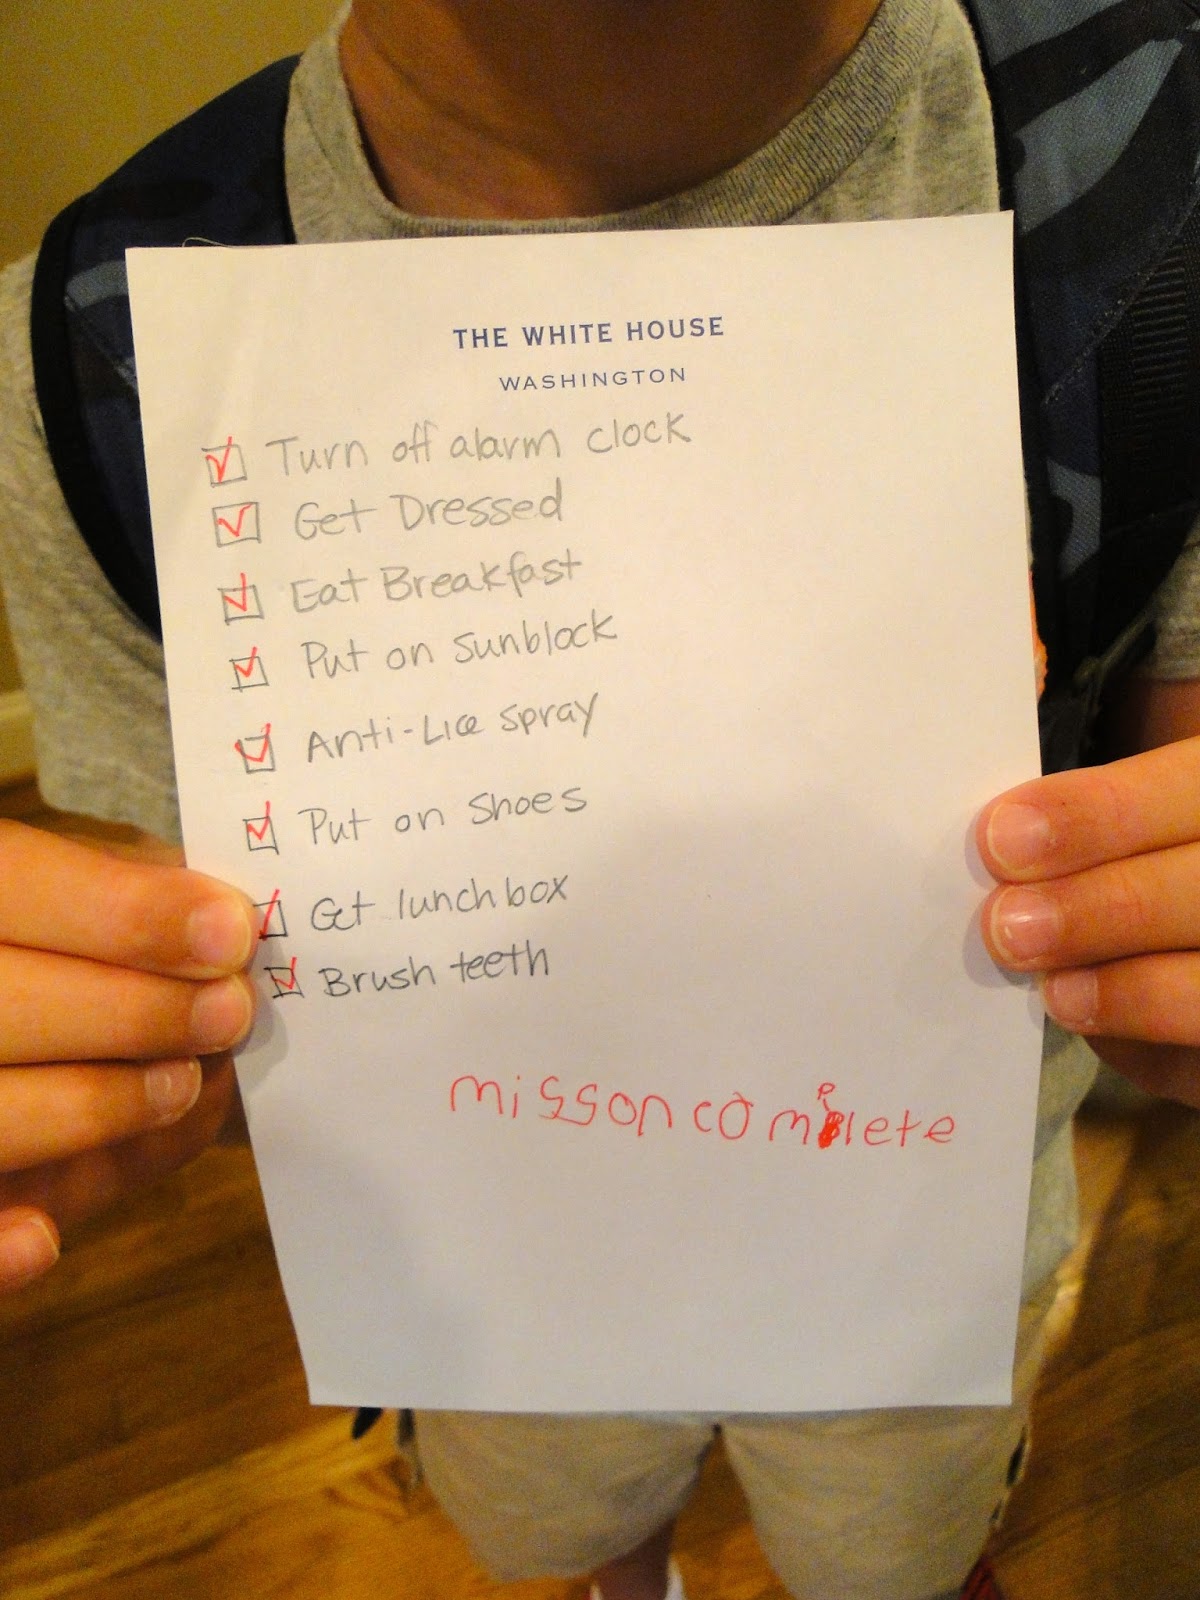 THE WHITE HOUSE
WASHINGTON
Turn off alarm clock
Get Dressed
Eat Breakfast
Put on sunblock
Anti-Lice spray
Put on shoes
Get lunchbox
Brush teeth
misson complete